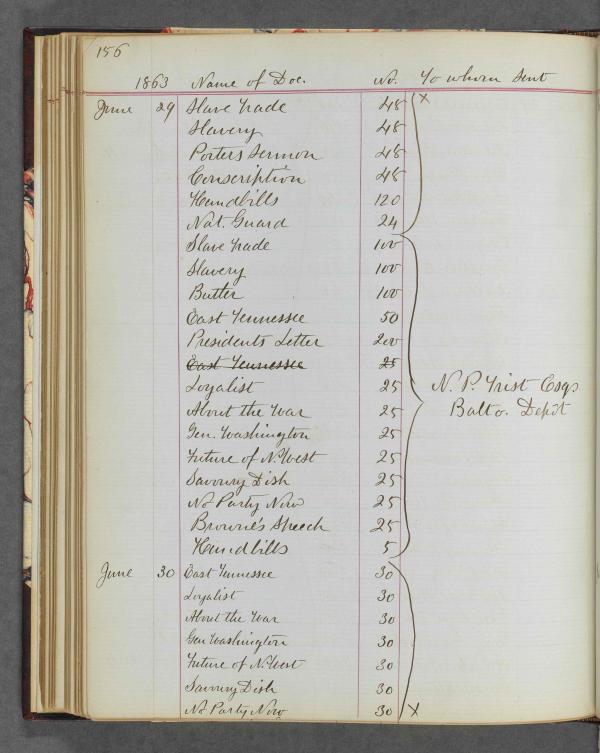 156
1863 Name of Doc. No. To whom Sent
June 29 Slave trade 48 x
Slavery 48
Porters Sermon 48
Conscription 48
Handbills 120
Nat. Guard 24
Slave trade 100
Slavery 100
Butler 100
East Tennessee 50
Presidents Letter 200
East Tennessee 25
Loyalist 25 N. P. Trist Esqr
About the War 25 Balto. Depôt
Gen. Washington 25
Future of N. West 25
Savoury Dish 25
No Party Now 25
Browne's Speech 25
Handbills 5
June 30 East Tennessee 30
Loyalist 30
About the War 30
Gen Washington 30
Future of N. West 30
Savoury Dish 30
No Party Now 30 x